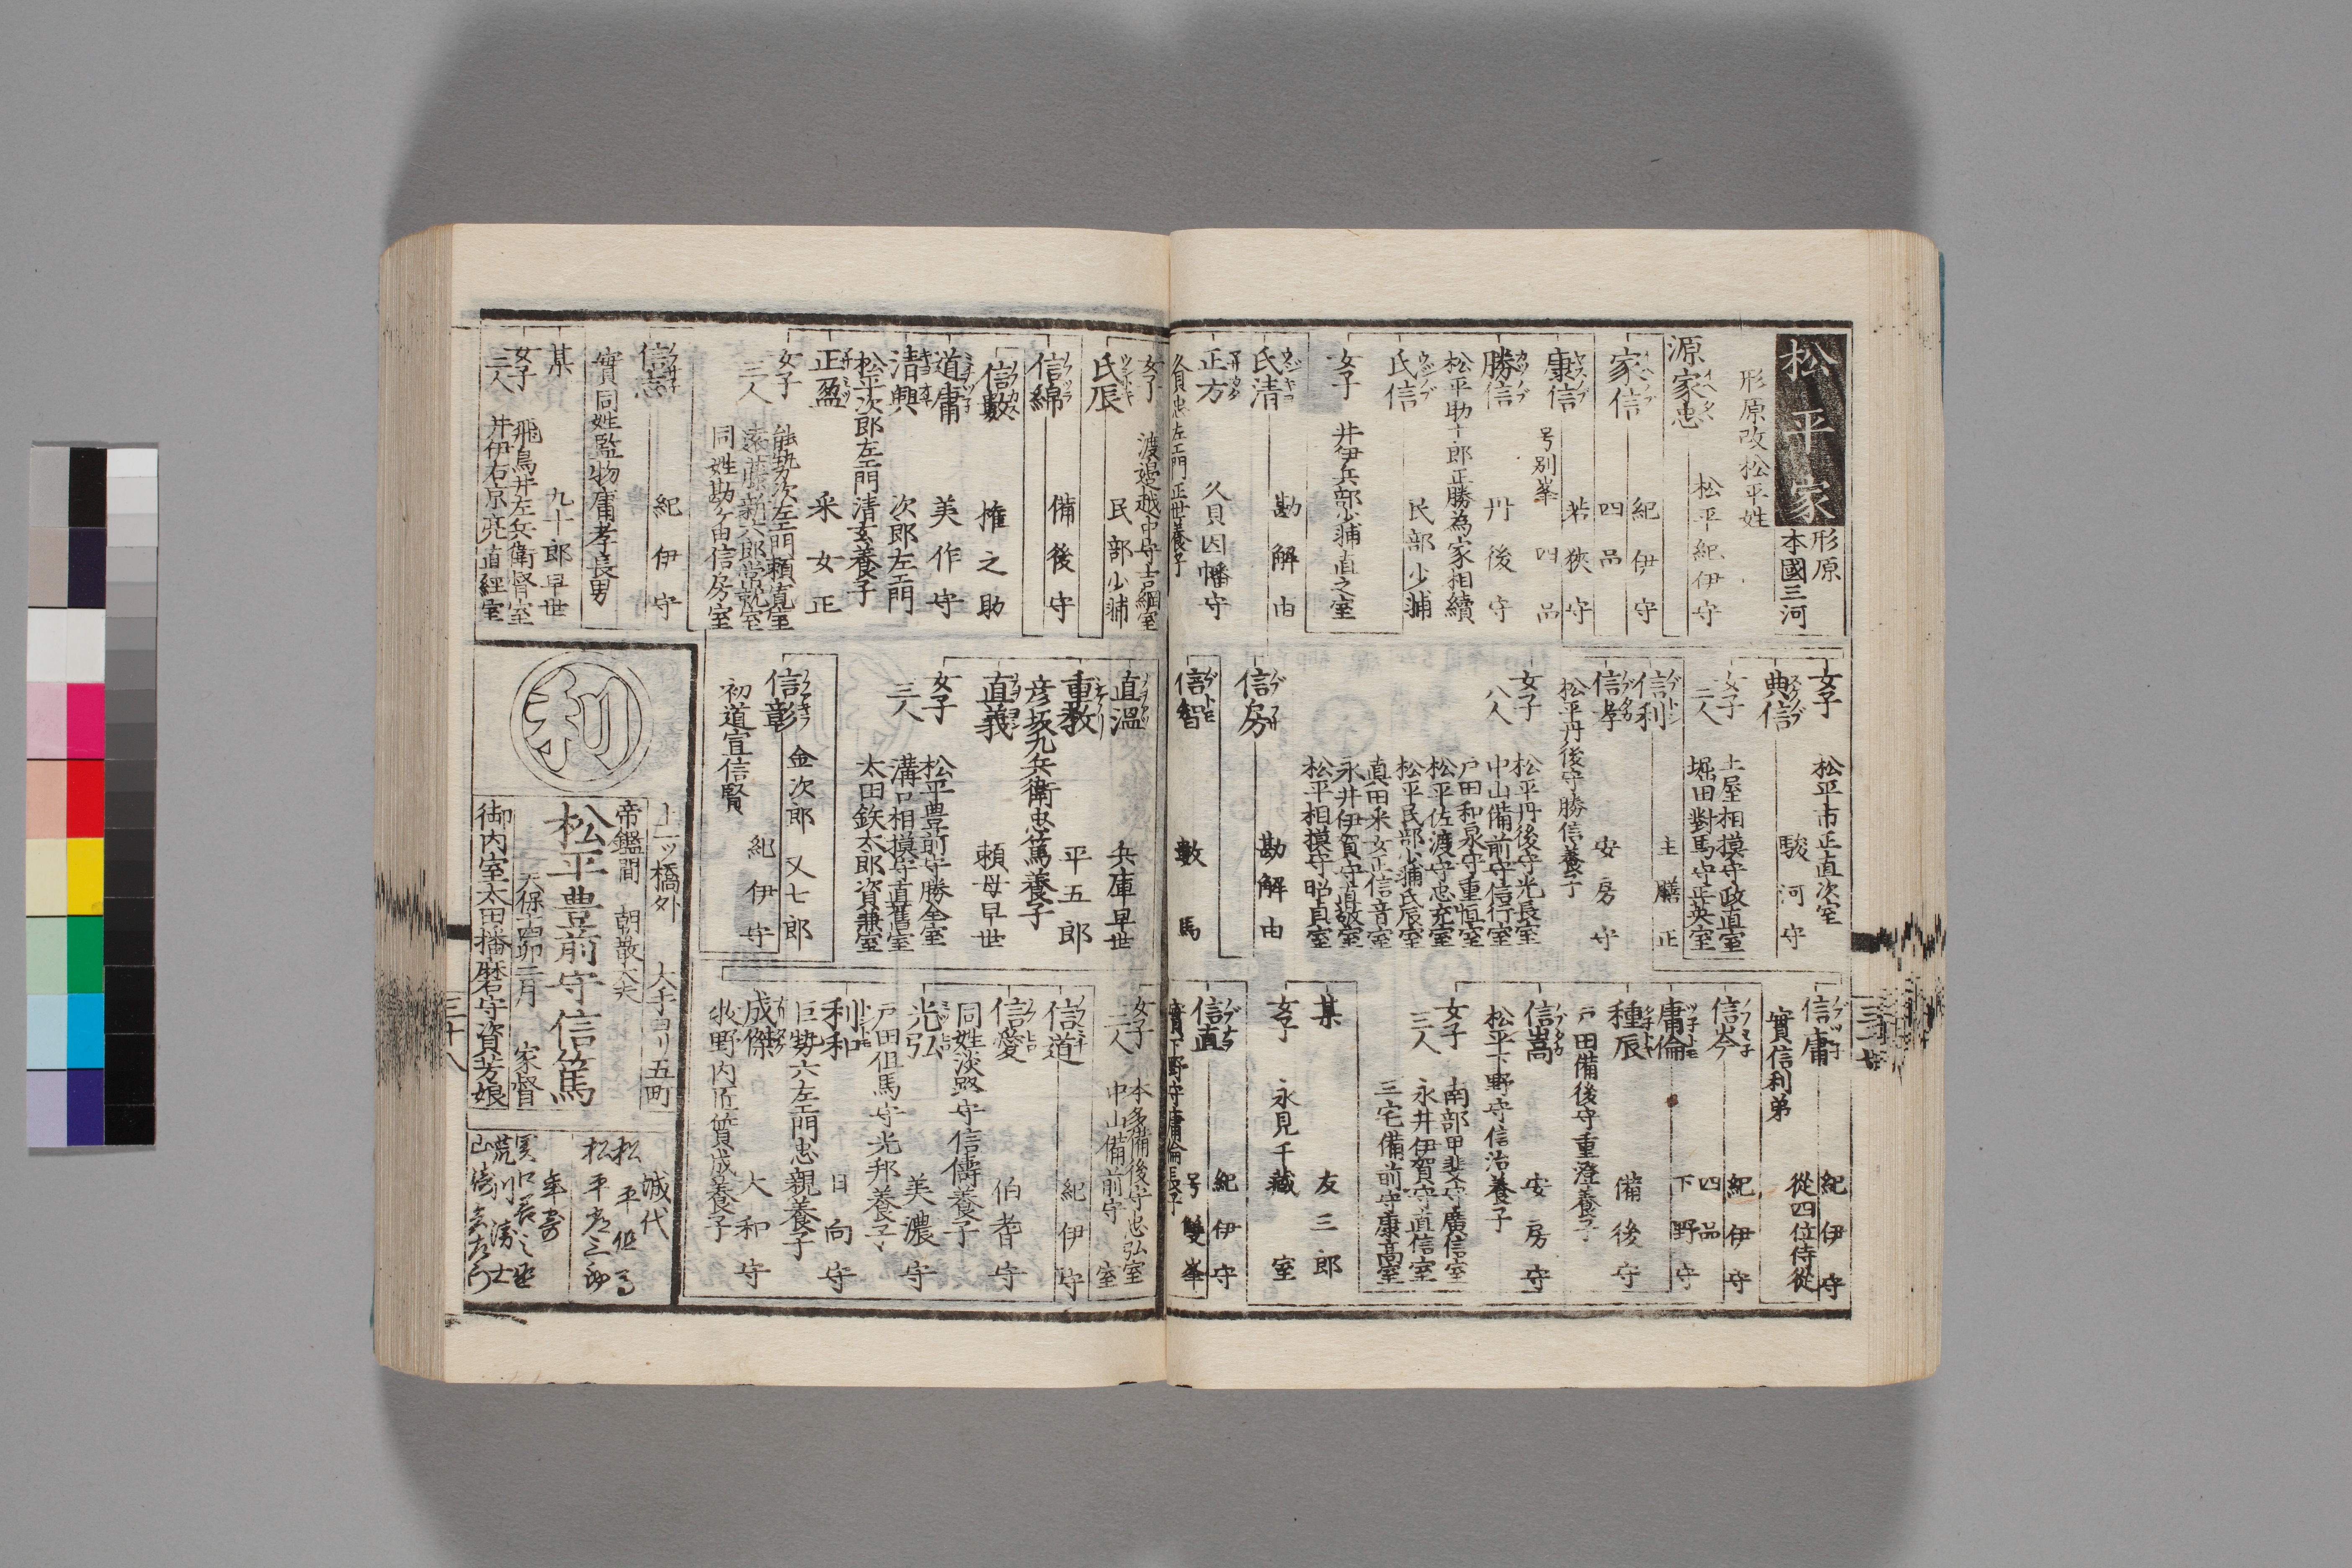 松平家
形原
本國三河
形原改松平姓
源家忠
イヘタヾ
松平紀伊守
家信
イヘノブ
紀伊守
四品
康信
ヤスノブ
若狭守
号別峯
四品
勝信
カツノブ
丹後守
松平助十郎正勝為家相續
氏信
ウジノブ
民部少輔
女子
井伊兵部少輔直之室
氏清
ウジキヨ
勘解由
正方
久貝因幡守
久貝忠左エ門正世養子
女子
松平市正直次室
典信
スケノブ
駿河守
女子
二人
土屋相摸守政直室
堀田對馬守正英室
信利
ノブトシ
主膳正
信孝
ノブタカ
安房守
松平丹後守勝信養子
女子
八人
松平丹後守光長室
中山備前守信行室
戸田和泉守重恒室
松平佐渡守忠充室
松平民部少輔氏辰室
真田采女正信音室
永井伊賀守直敬室
松平相摸守昭貞室
信房
ノブフサ
勘解由
信智
ノブトモ
數馬
信庸
紀伊守
從四位侍從
實信利弟
信岑
紀伊守
四品
庸倫
下野守
種辰
備後守
戸田備後守重澄養子
信嵩
ノブタカ
安房守
松平下野守信治養子
女子
三人
南部甲斐守廣信室
永井伊賀守直信室
三宅備前守康高室
某
友三郎
女子
永見千藏室
信直
ノブナヲ
紀伊守
号雙峯
實下野守庸倫長子
女子
渡邊越中守吉綱室
氏辰
民部少輔
信綿
備後守
信數
ノブカズ
権之助
道庸
美作守
清興
次郎左エ門
松平次郎左エ門清玄養子
正盈
采女正
女子
三人
能勢次左エ門頼寛室
遠藤新六郎常就室
同姓勘ケ由信房室
信志
紀伊守
實同姓監物庸孝長男
某
九十郎早世
女子
二人
飛鳥井左兵衛督室
井伊右京亮直經室
直温
兵庫早世
重教
平五郎
彦坂九兵衛忠篤養子
直義
頼母早世
女子
三人
松平豊前守勝全室
溝口相摸守直舊室
太田鉄太郎資兼室
信彰
金次郎 又七郎
紀伊守
初道宣信賢
女子
二人
本多備後守忠弘室
中山備前守室
信道
紀伊守
信愛
伯耆守
同姓淡路守信傳養子
光弘
美濃守
戸田但馬守光邦養子
利和
日向守
巨勢六左エ門忠親養子
成傑
大和守
牧野内匠質成養子
利
上ツ橋外
大手ヨリ五町
帝鑑間 朝散大夫
松平豊前守信篤
天保十四卯三月 家督
御内室太田播磨守資芳娘
城代
年寄
三十八